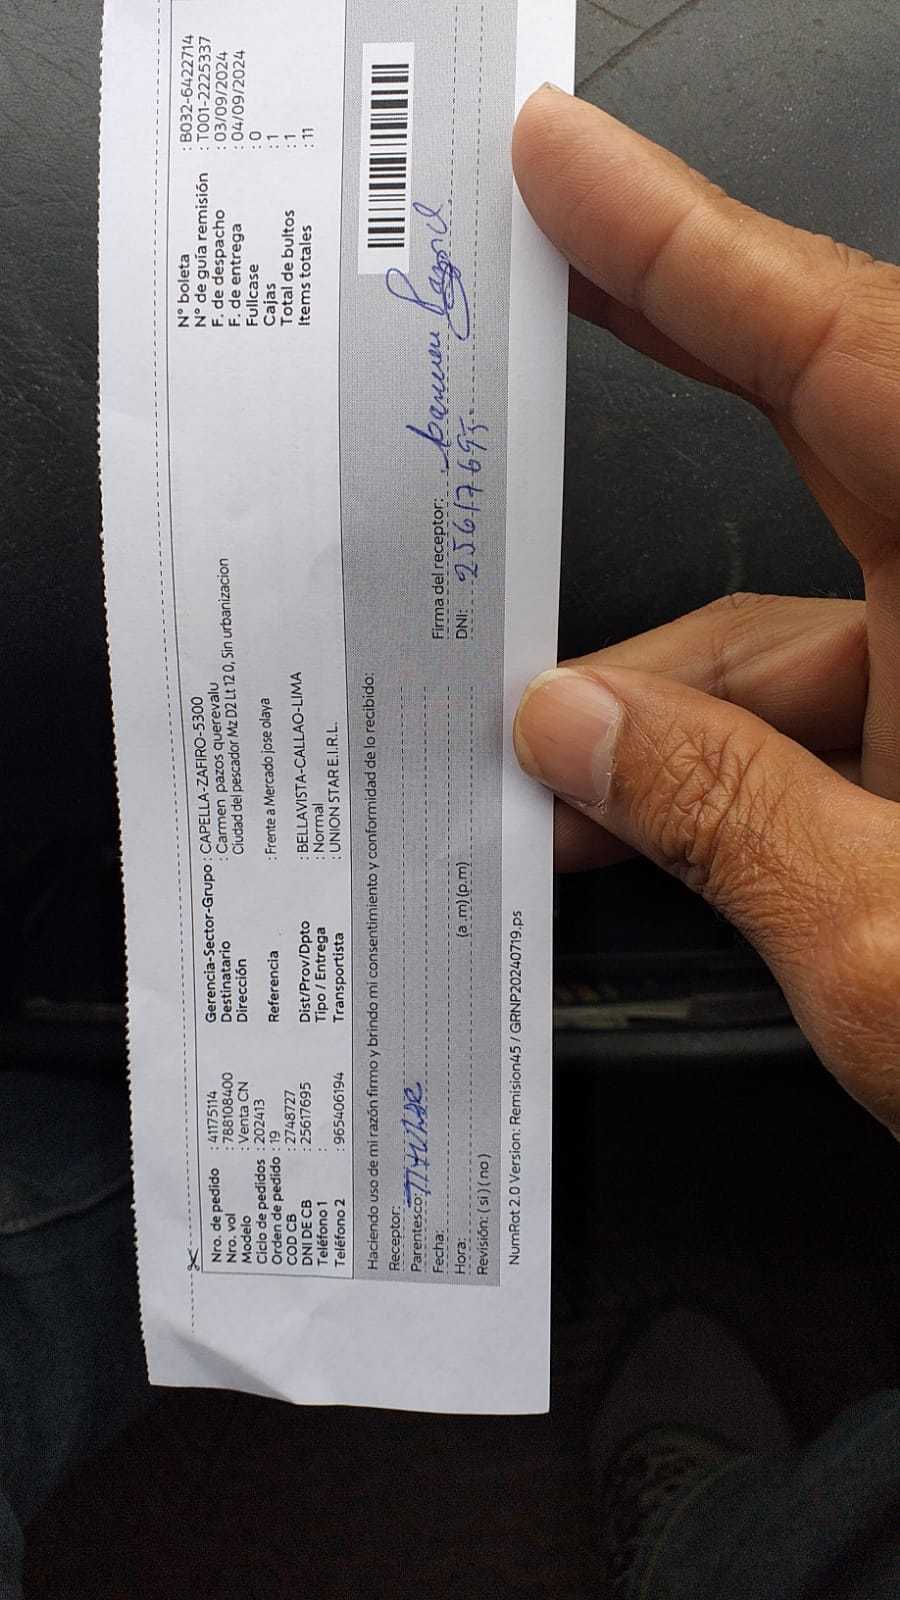 Nro. de pedido : 41175114
Nro. vol : 788108400
Modelo : Venta CN
Ciclo de pedidos : 202413
Orden de pedido : 19
COD CB : 2748727
DNI DE CB : 25617695
Teléfono 1 :
Teléfono 2 : 965406194
Gerencia-Sector-Grupo : CAPELLA-ZAFIRO-5300
Destinatario : Carmen pazos querevalu
Dirección Ciudad del pescador Mz D2 Lt 12 0, Sin urbanizacion
Referencia : Frente a Mercado jose olaya
Dist/Prov/Dpto : BELLAVISTA-CALLAO-LIMA
Tipo / Entrega : Normal
Transportista : UNION STAR E.I.R.L.
N° boleta : B032-6422714
N° de guía remisión : T001-2225337
F. de despacho : 03/09/2024
F. de entrega : 04/09/2024
Fullcase : 0
Cajas : 1
Total de bultos : 1
Items totales : 11
Haciendo uso de mi razón firmo y brindo mi consentimiento y conformidad de lo recibido:
Receptor:
Parentesco:
Fecha:
Hora: (a .m) (p.m)
Revisión: ( si ) ( no )
Firma del receptor: Carmen
DNI: 25617695
NumRot 2.0 Version: Remision45 / GRNP20240719.ps